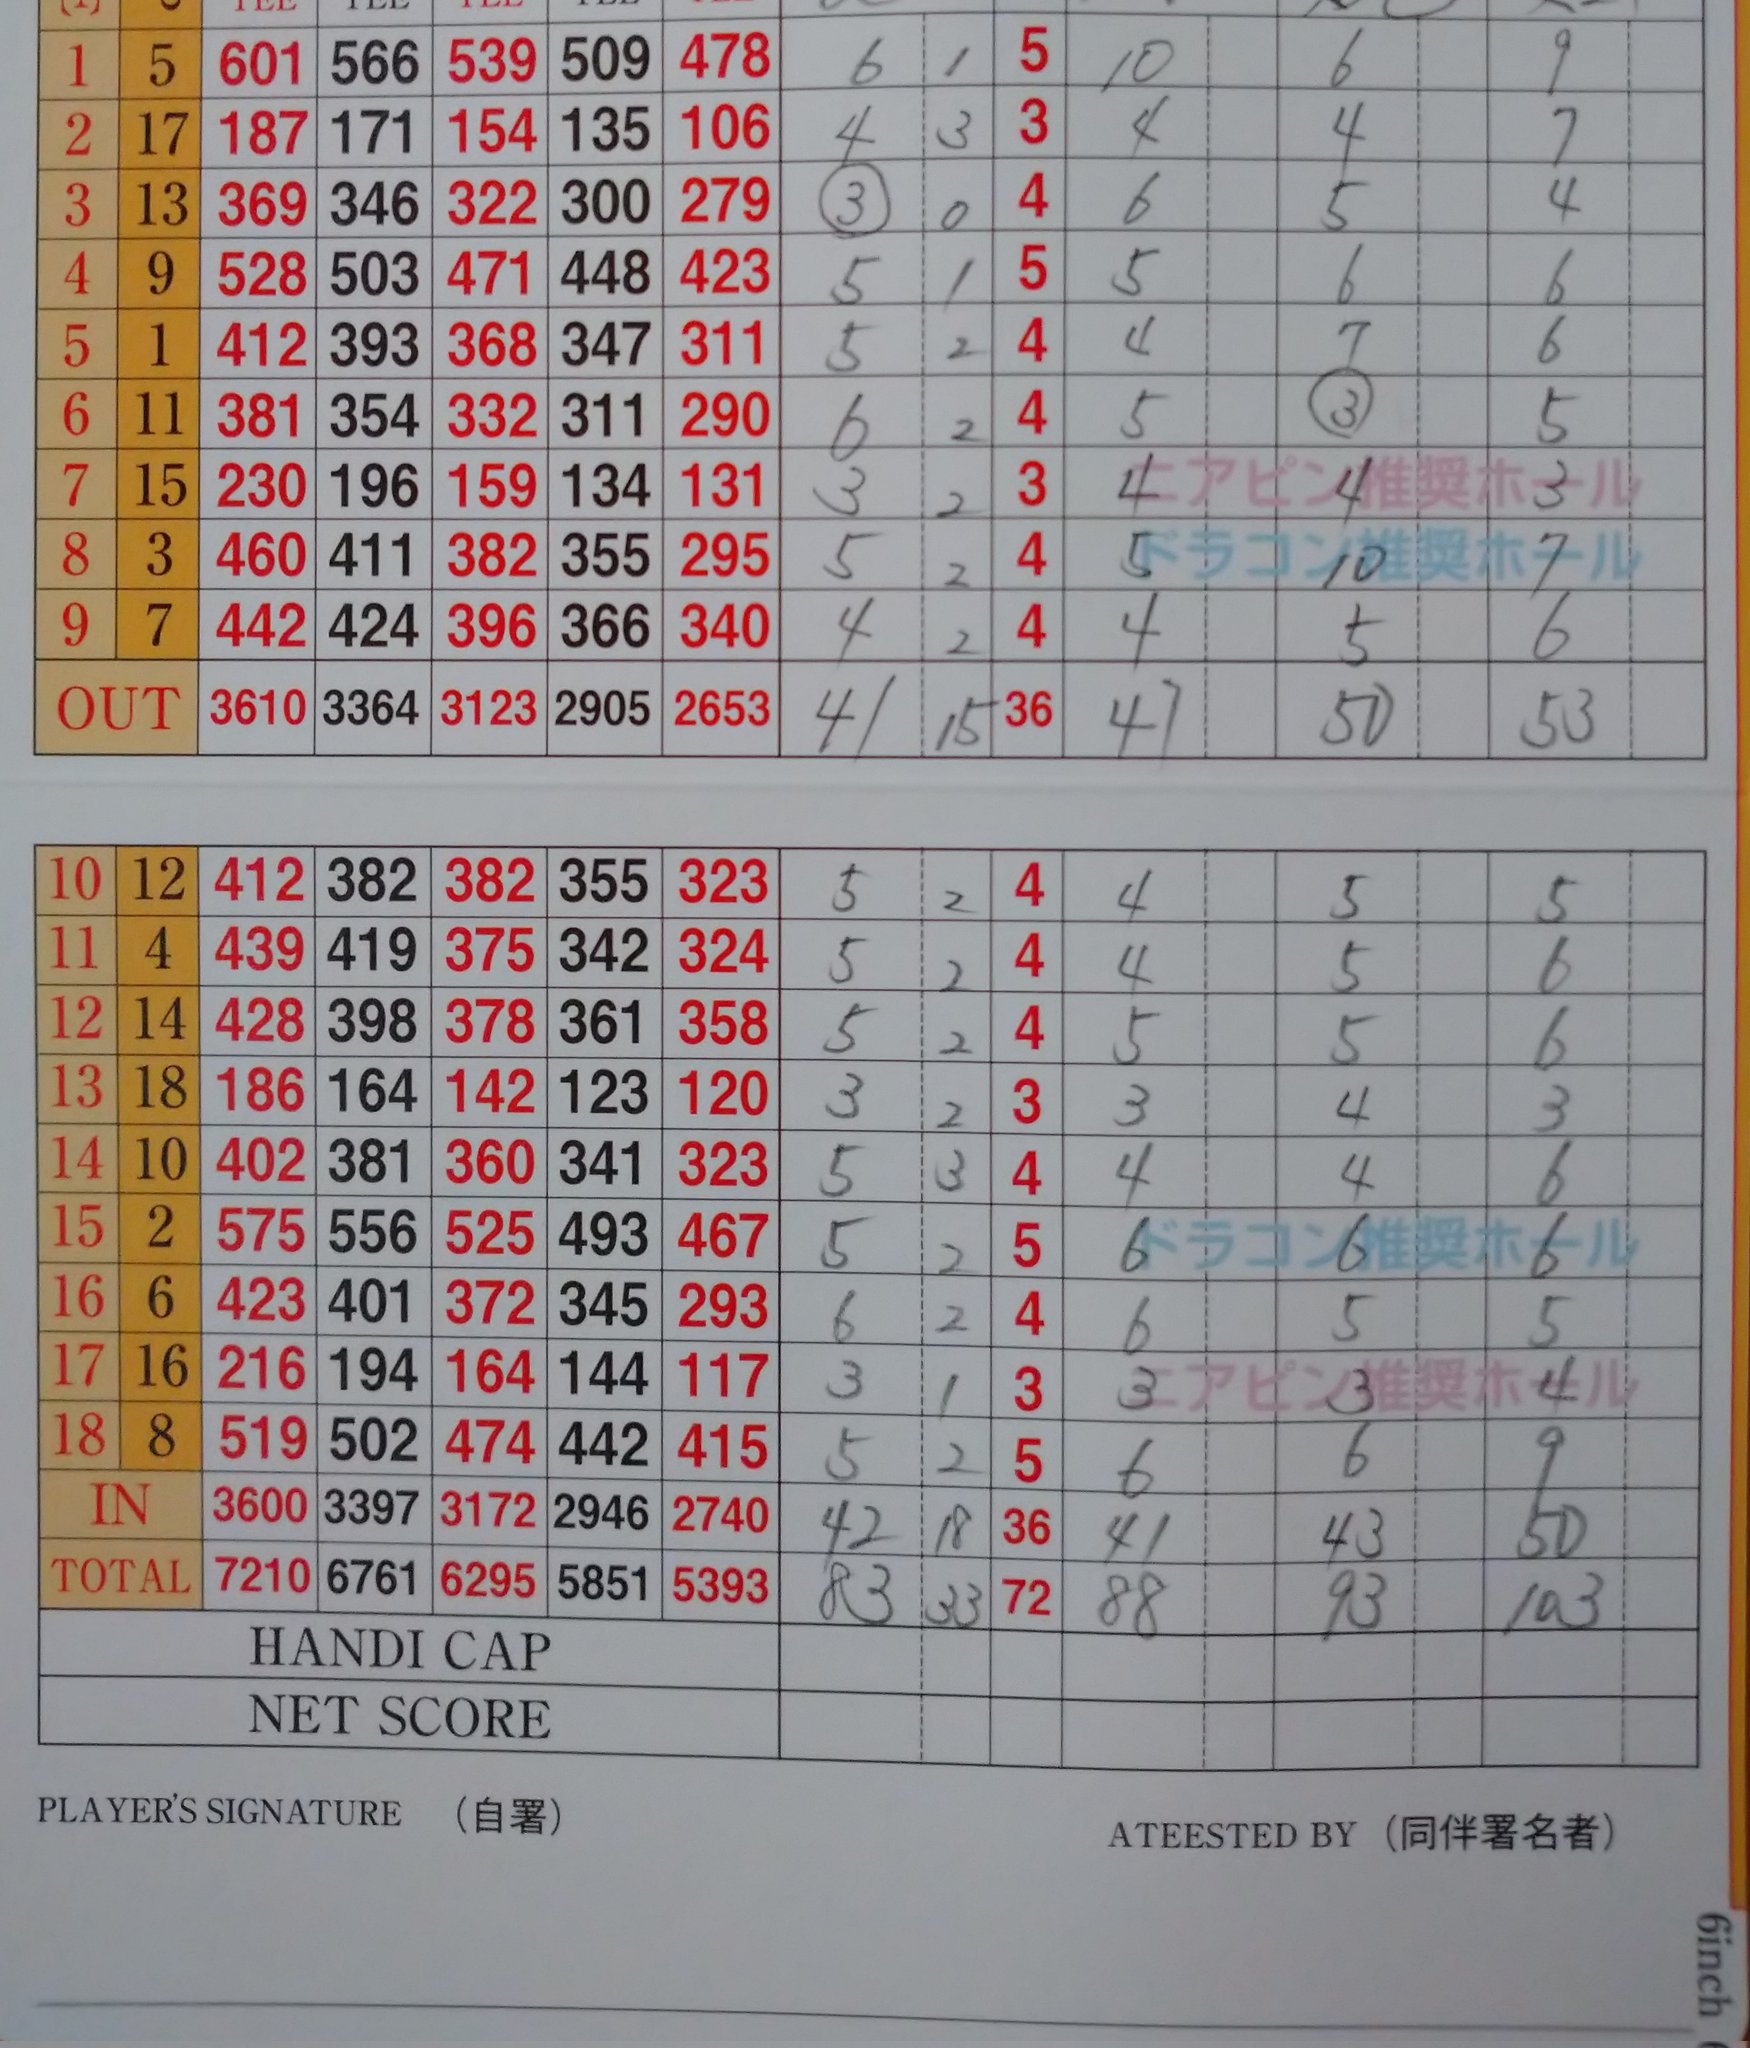 1 5 601 566 539 509 478 6 1 5 10 6 9
2 17 187 171 154 135 106 4 3 3 4 4 7
3 13 369 346 322 300 279 3 0 4 6 5 4
4 9 528 503 471 448 423 5 1 5 5 6 6
5 1 412 393 368 347 311 5 2 4 4 7 6
6 11 381 354 332 311 290 6 2 4 5 3 5
7 15 230 196 159 134 131 3 2 3 4 4 3
ニアピン推奨ホール
8 3 460 411 382 355 295 5 2 4 5 10 7
ドラコン推奨ホール
9 7 442 424 396 366 340 4 2 4 4 5 6
OUT 3610 3364 3123 2905 2653 41 15 36 47 50 53
10 12 412 382 382 355 323 5 2 4 4 5 5
11 4 439 419 375 342 324 5 2 4 4 5 6
12 14 428 398 378 361 358 5 2 4 5 5 6
13 18 186 164 142 123 120 3 2 3 3 4 3
14 10 402 381 360 341 323 5 3 4 4 4 6
15 2 575 556 525 493 467 5 2 5 6 6 6
ドラコン推奨ホール
16 6 423 401 372 345 293 6 2 4 6 5 5
17 16 216 194 164 144 117 3 1 3 3 3 4
ニアピン推奨ホール
18 8 519 502 474 442 415 5 2 5 6 6 9
IN 3600 3397 3172 2946 2740 42 18 36 41 43 50
TOTAL 7210 6761 6295 5851 5393 83 33 72 88 93 103
HANDI CAP
NET SCORE
PLAYER'S SIGNATURE （自署）
ATEESTED BY（同伴署名者）
6inch